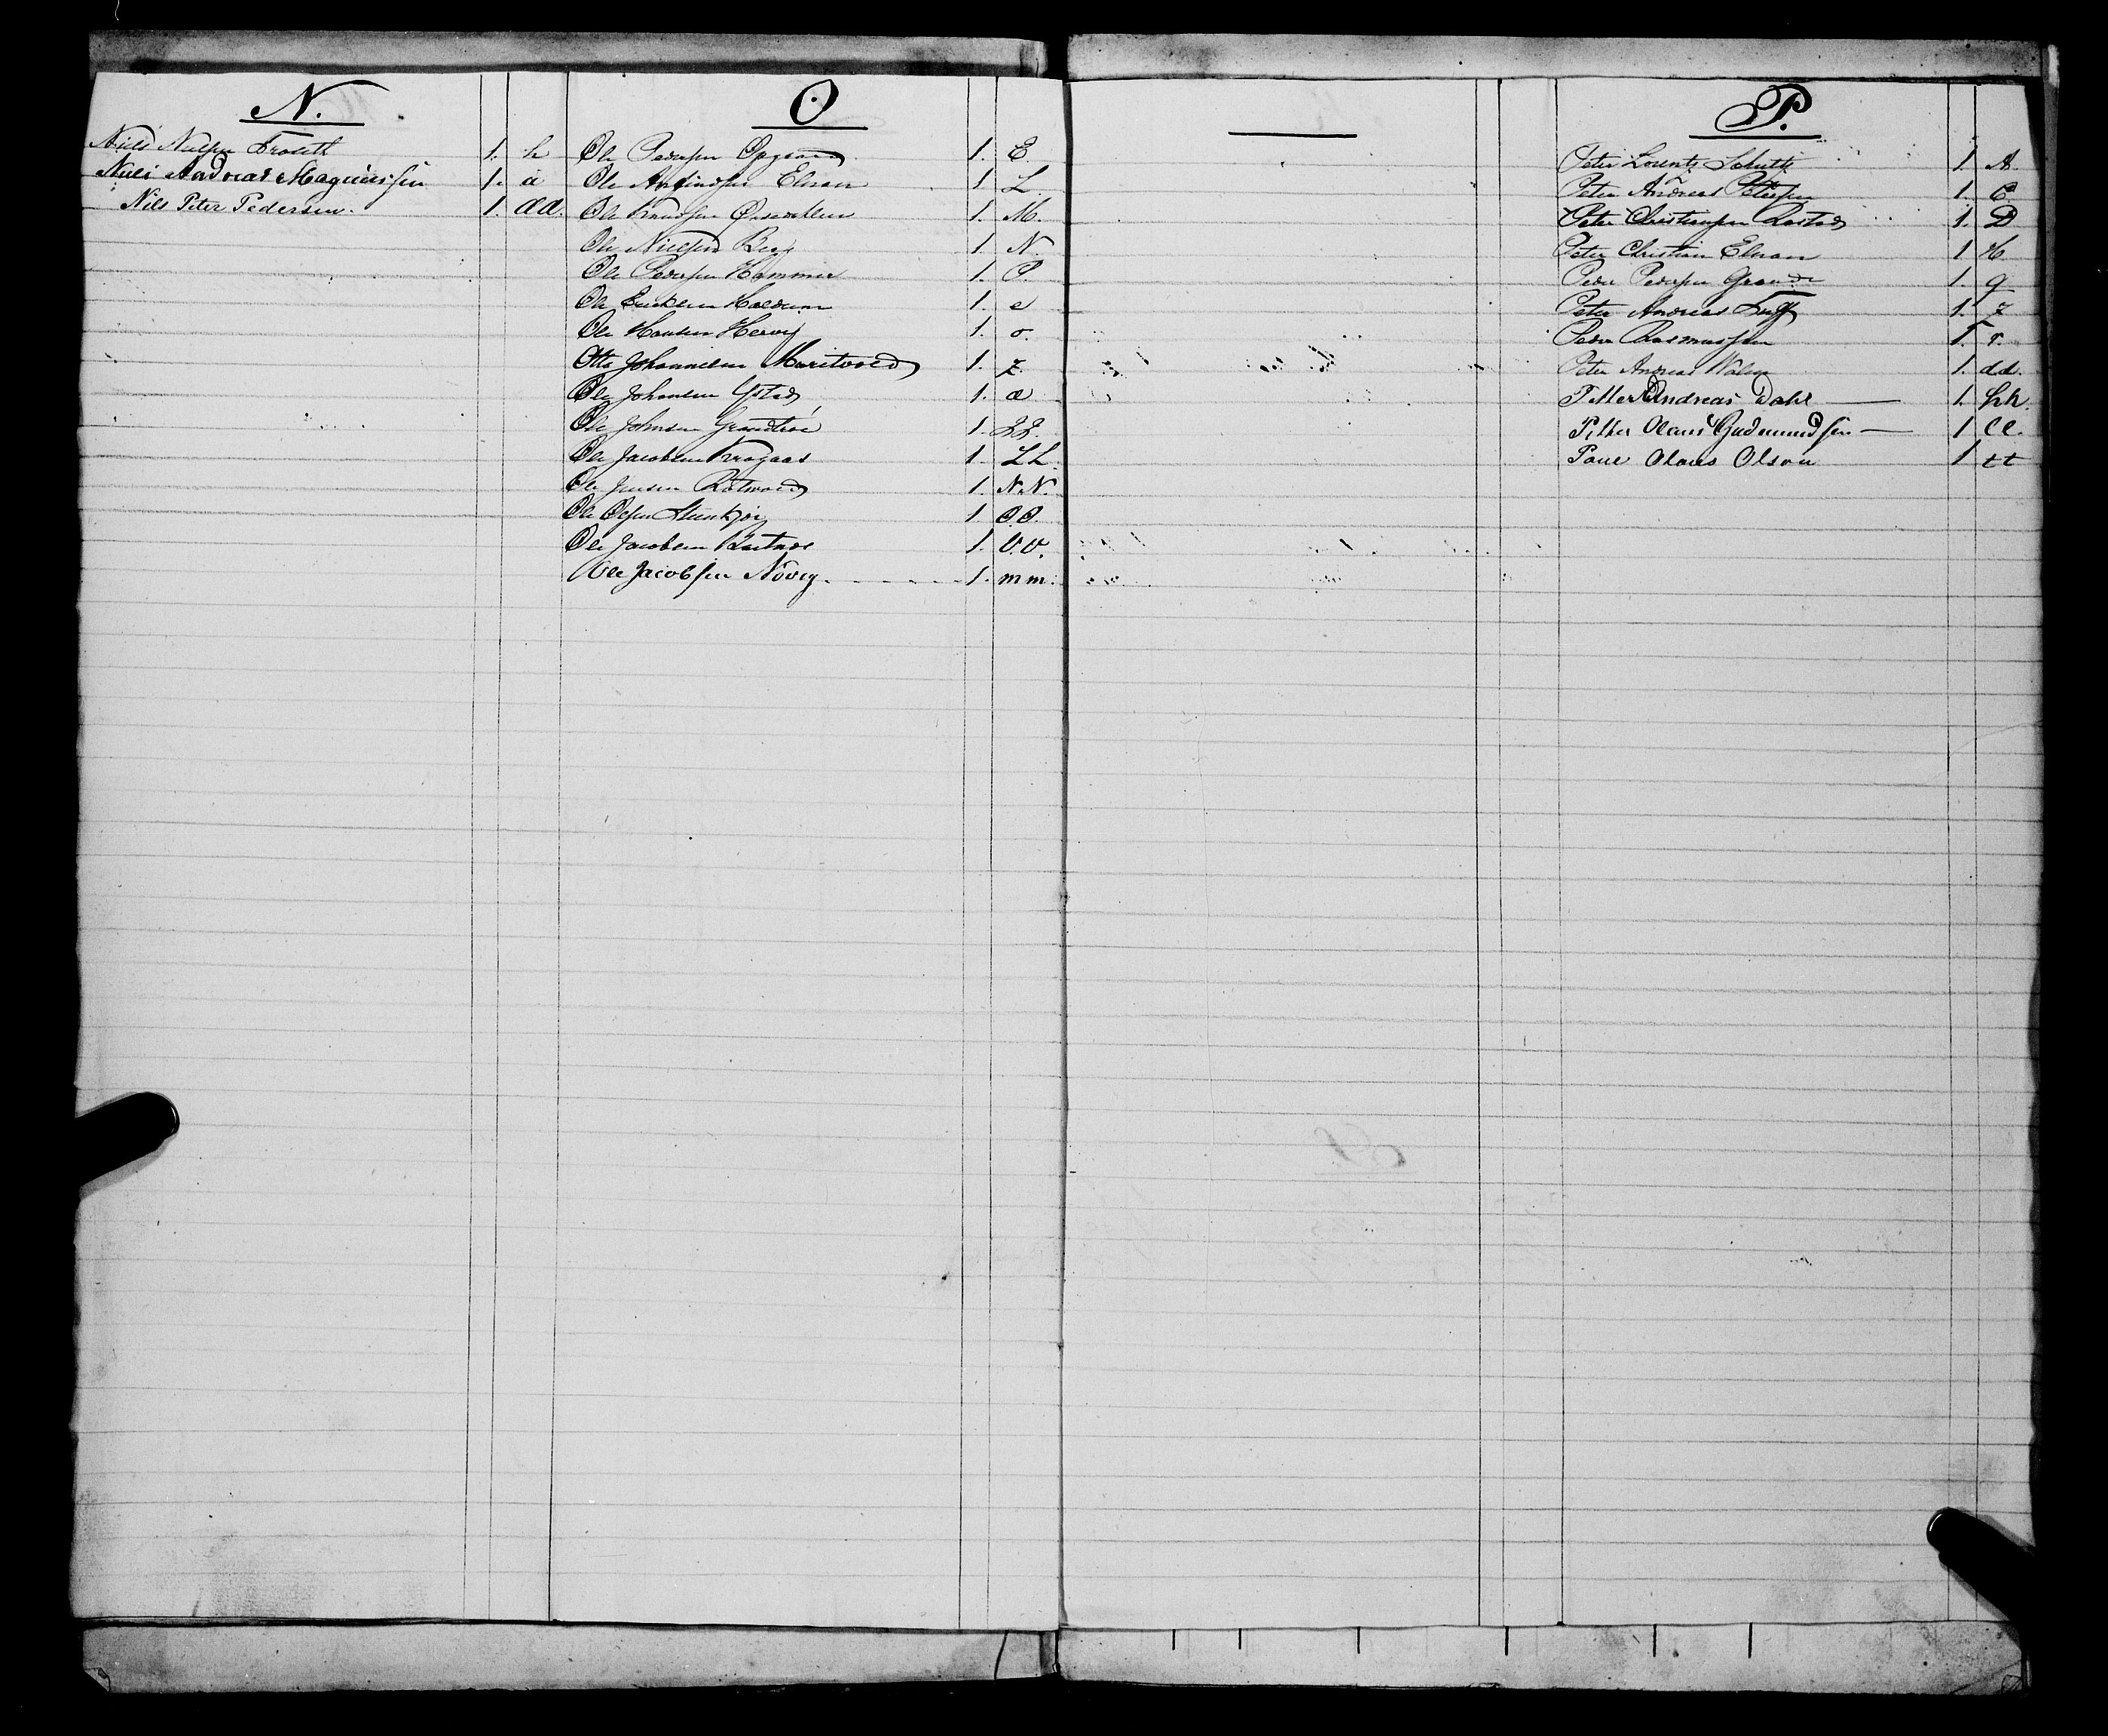 N.
Niels Nielsen Froseth 1. h
Niels Andreas Magnussen 1. a
Nils Peter Pedersen. 1. dd.
O
Ole Pedersen Opgaard 1. E
Ole Arfindsen Elnan 1 L.
Ole Knudsen 1. M.
Ole Nielsen Berg 1. N.
Ole Pedersen Hammer 1. P.
Ole Ericksen 1. e
Ole Hansen Hervig 1. o.
Otto Johannesen Maritvold 1. z.
Ole Johansen Ystad 1. æ
Ole Johnsen 1.
Ole Jacobsen Kragaas 1. LL.
Ole Jensen Rotvold 1. N.N.
Ole Olsen Steenkjer 1 O.O.
Ole Jacobsen 1. V.V.
Ole Jacobsen Növig. 1. mm.
P.
Peter Lorentz Schultz 1. A.
Peter Andreas Petersen 1. C.
Peter Christiansen Rostad 1. D
Peter Christian Elnan 1 H.
Peder Pedersen Grande 1. q
Peter Andreas 1. z
Peder Rasmussen 1. r.
Peter Andreas 1. dd.
Petter Andreas Dahl — 1. hh.
Petter Olaus Gudmundsen — 1 ll.
Paul Olaus Olsen 1 tt